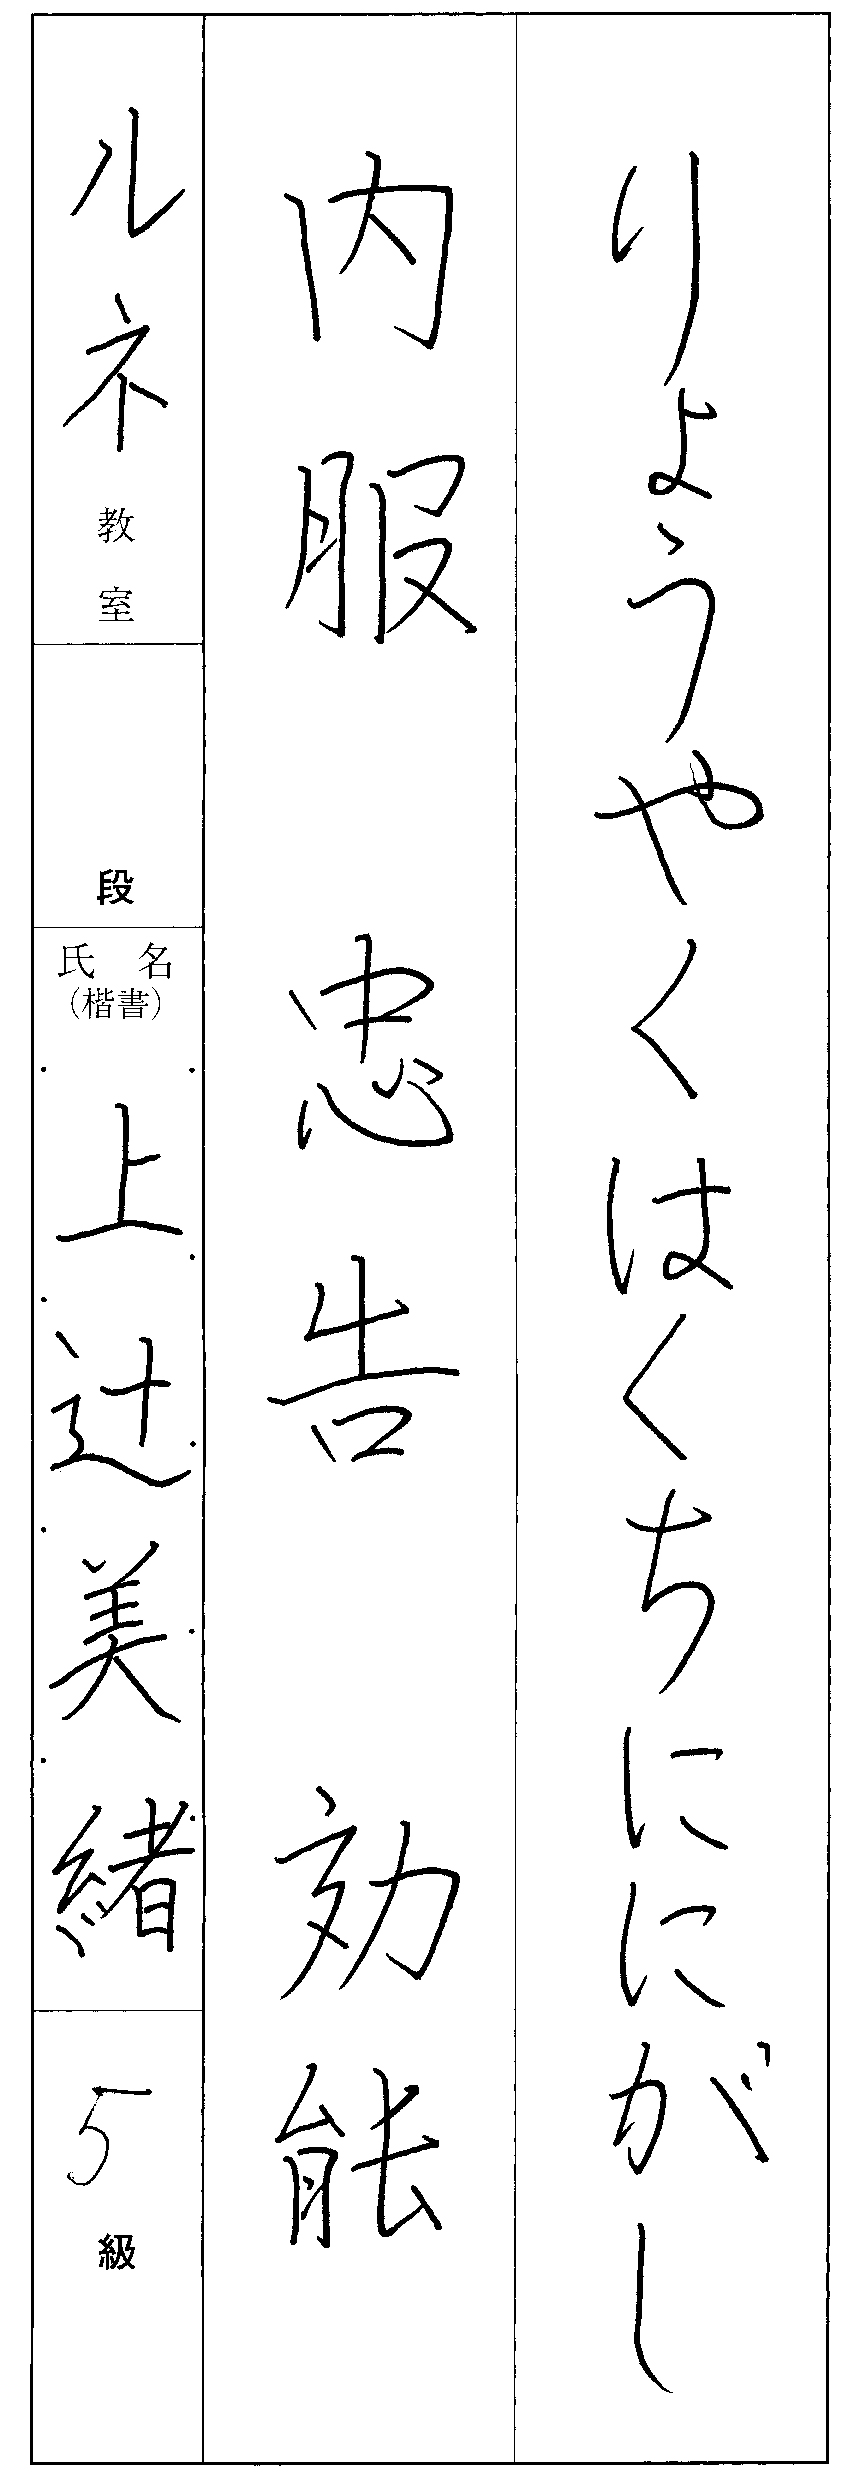 りようやくはくちににがし
内服 忠告 効能
ルネ教室
段
氏名
(楷書)
上辻美緒
5級